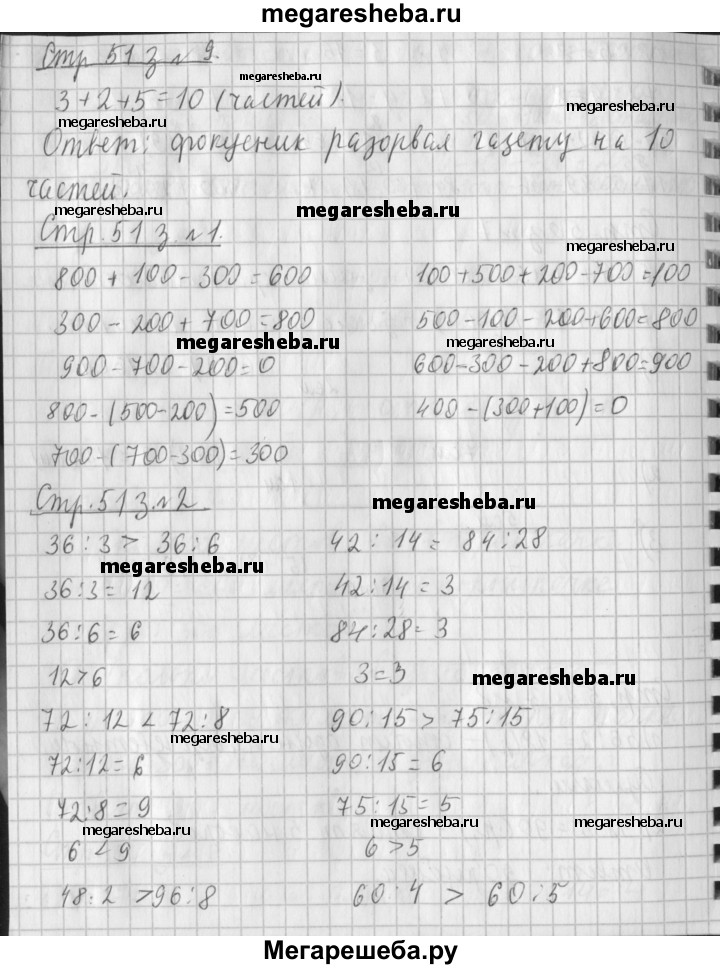 megaresheba.ru
Стр 51 з № 9.
megaresheba.ru
3 + 2 + 5 = 10 (частей).
megaresheba.ru
megaresheba.ru
Ответ: фокусник разорвал газету на 10
частей.
megaresheba.ru
megaresheba.ru
Стр. 51 з. №1.
megaresheba.ru
800 + 100 - 300 = 600
100 + 500 + 200 - 700 = 100
300 - 200 + 700 = 800
500 - 100 - 200 + 600 = 800
megaresheba.ru
megaresheba.ru
900 - 700 - 200 = 0
600 - 300 - 200 + 800 = 900
800 - (500 - 200) = 500
400 - (300 + 100) = 0
700 - (700 - 300) = 300
Стр. 51 з. №2
megaresheba.ru
36 : 3 > 36 : 6
42 : 14 = 84 : 28
megaresheba.ru
36 : 3 = 12
42 : 14 = 3
36 : 6 = 6
84 : 28 = 3
12 > 6
3 = 3
megaresheba.ru
72 : 12 < 72 : 8
90 : 15 > 75 : 15
megaresheba.ru
72 : 12 = 6
90 : 15 = 6
72 : 8 = 9
75 : 15 = 5
megaresheba.ru
megaresheba.ru
megaresheba.ru
6 < 9
6 > 5
48 : 2 > 96 : 8
60 : 4 > 60 : 5
Мегарешеба.ру